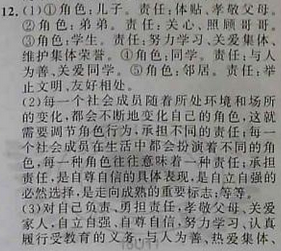 12.(1)①角色:儿子。责任:体贴、孝敬父母。
②角色:弟弟。责任:关心、照顾哥哥。
③角色:学生。责任:努力学习、关爱集体、
维护集体荣誉。④角色:同学。责任:与人
为善、关爱同学。⑤角色:邻居。责任:举
止文明、友好相处。
(2)每一个社会成员随着所处环境和场所
的变化,都会不断地变化自己的角色,这就
需要调节角色行为,承担不同的责任;每一
个社会成员在生活中都会扮演着不同的角
色,每一种角色往往意味着一种责任;承担
责任,是自尊自信的具体表现,是自立自强的
必然选择,是走向成熟的重要标志;等等。
(3)对自己负责、勇担责任,孝敬父母、关爱
家人,自立自强、自尊自信,努力学习、认真
履行受教育的义务,与人为善、热爱集体、